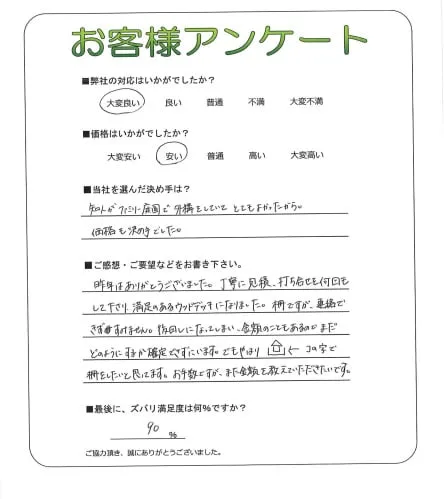 お客様アンケート
■弊社の対応はいかがでしたか？
大変良い 良い 普通 不満 大変不満
■価格はいかがでしたか？
大変安い 安い 普通 高い 大変高い
■当社を選んだ決め手は？
知人がファミリー庭園で外構をしていてとてもよかったから。
価格も決め手でした。
■ご感想・ご要望などをお書き下さい。
昨年はありがとうございました。丁寧に見積、打ち合せも何回も
して下さり、満足のあるウッドデッキになりました。柵ですが、連絡で
きずすみません。後回しになってしまい、金額のこともあるのでまだ
どのようにするか確定できずにいます。でもやはり ← コの字で
柵をしたいと思ってます。お手数ですが、また金額を教えていただきたいです。
■最後に、ズバリ満足度は何%ですか？
90 %
ご協力頂き、誠にありがとうございました。